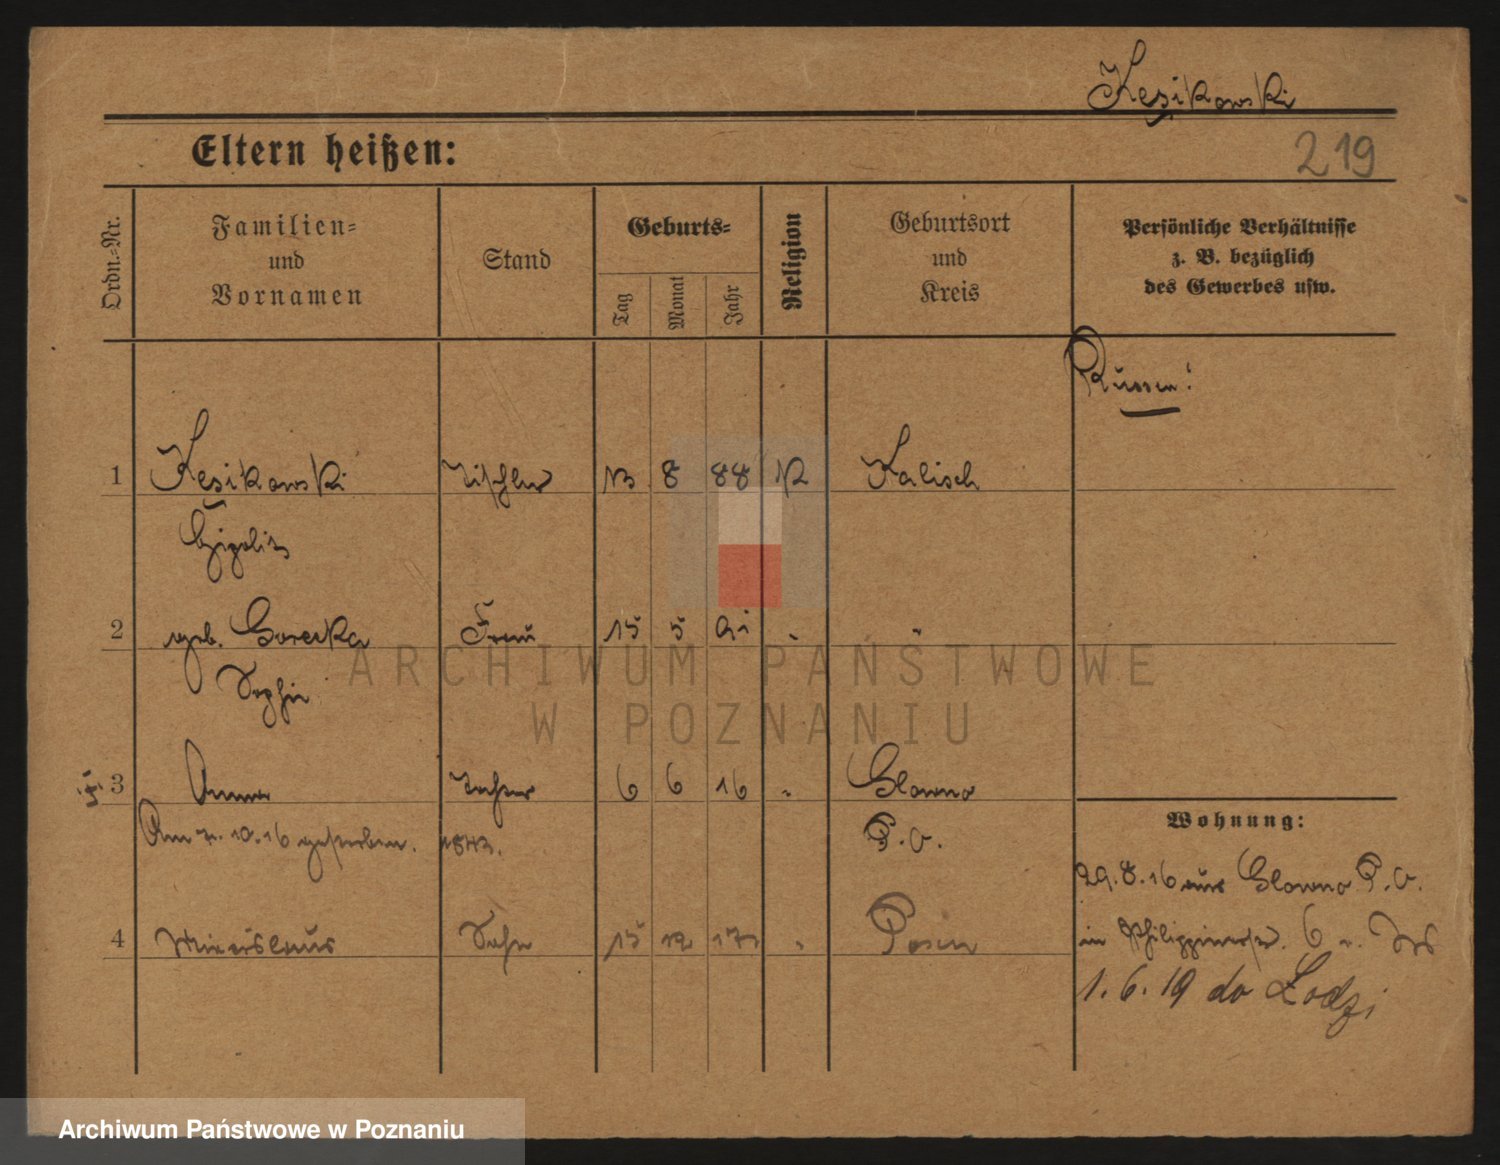 Kesikowski
Eltern heißen:
219
Ordn.-Nr.
Familien-
und
Vornamen
Stand
Geburts-
Tag
Monat
Jahr
Religion
Geburtsort
und
Kreis
Persönliche Verhältnisse
z. B. bezüglich
des Gewerbes usw.
Russen!
1 Kesikowski Tischler 13 8 88 K Kalisch
2 geb. Gorecka Frau 15 5 91 "
Sophie
3 Anna Tochter 6 6 16 " Glowno
Am 10.16 gestorben. P.O.
Wohnung:
29.8.16 aus Glowno P.O.
4 Miecislaus Sohn 15 12 17 " Posen
in Philippinerstr. 6
1.6.19 do Łodzi
ARCHIWUM PAŃSTWOWE
W POZNANIU
Archiwum Państwowe w Poznaniu